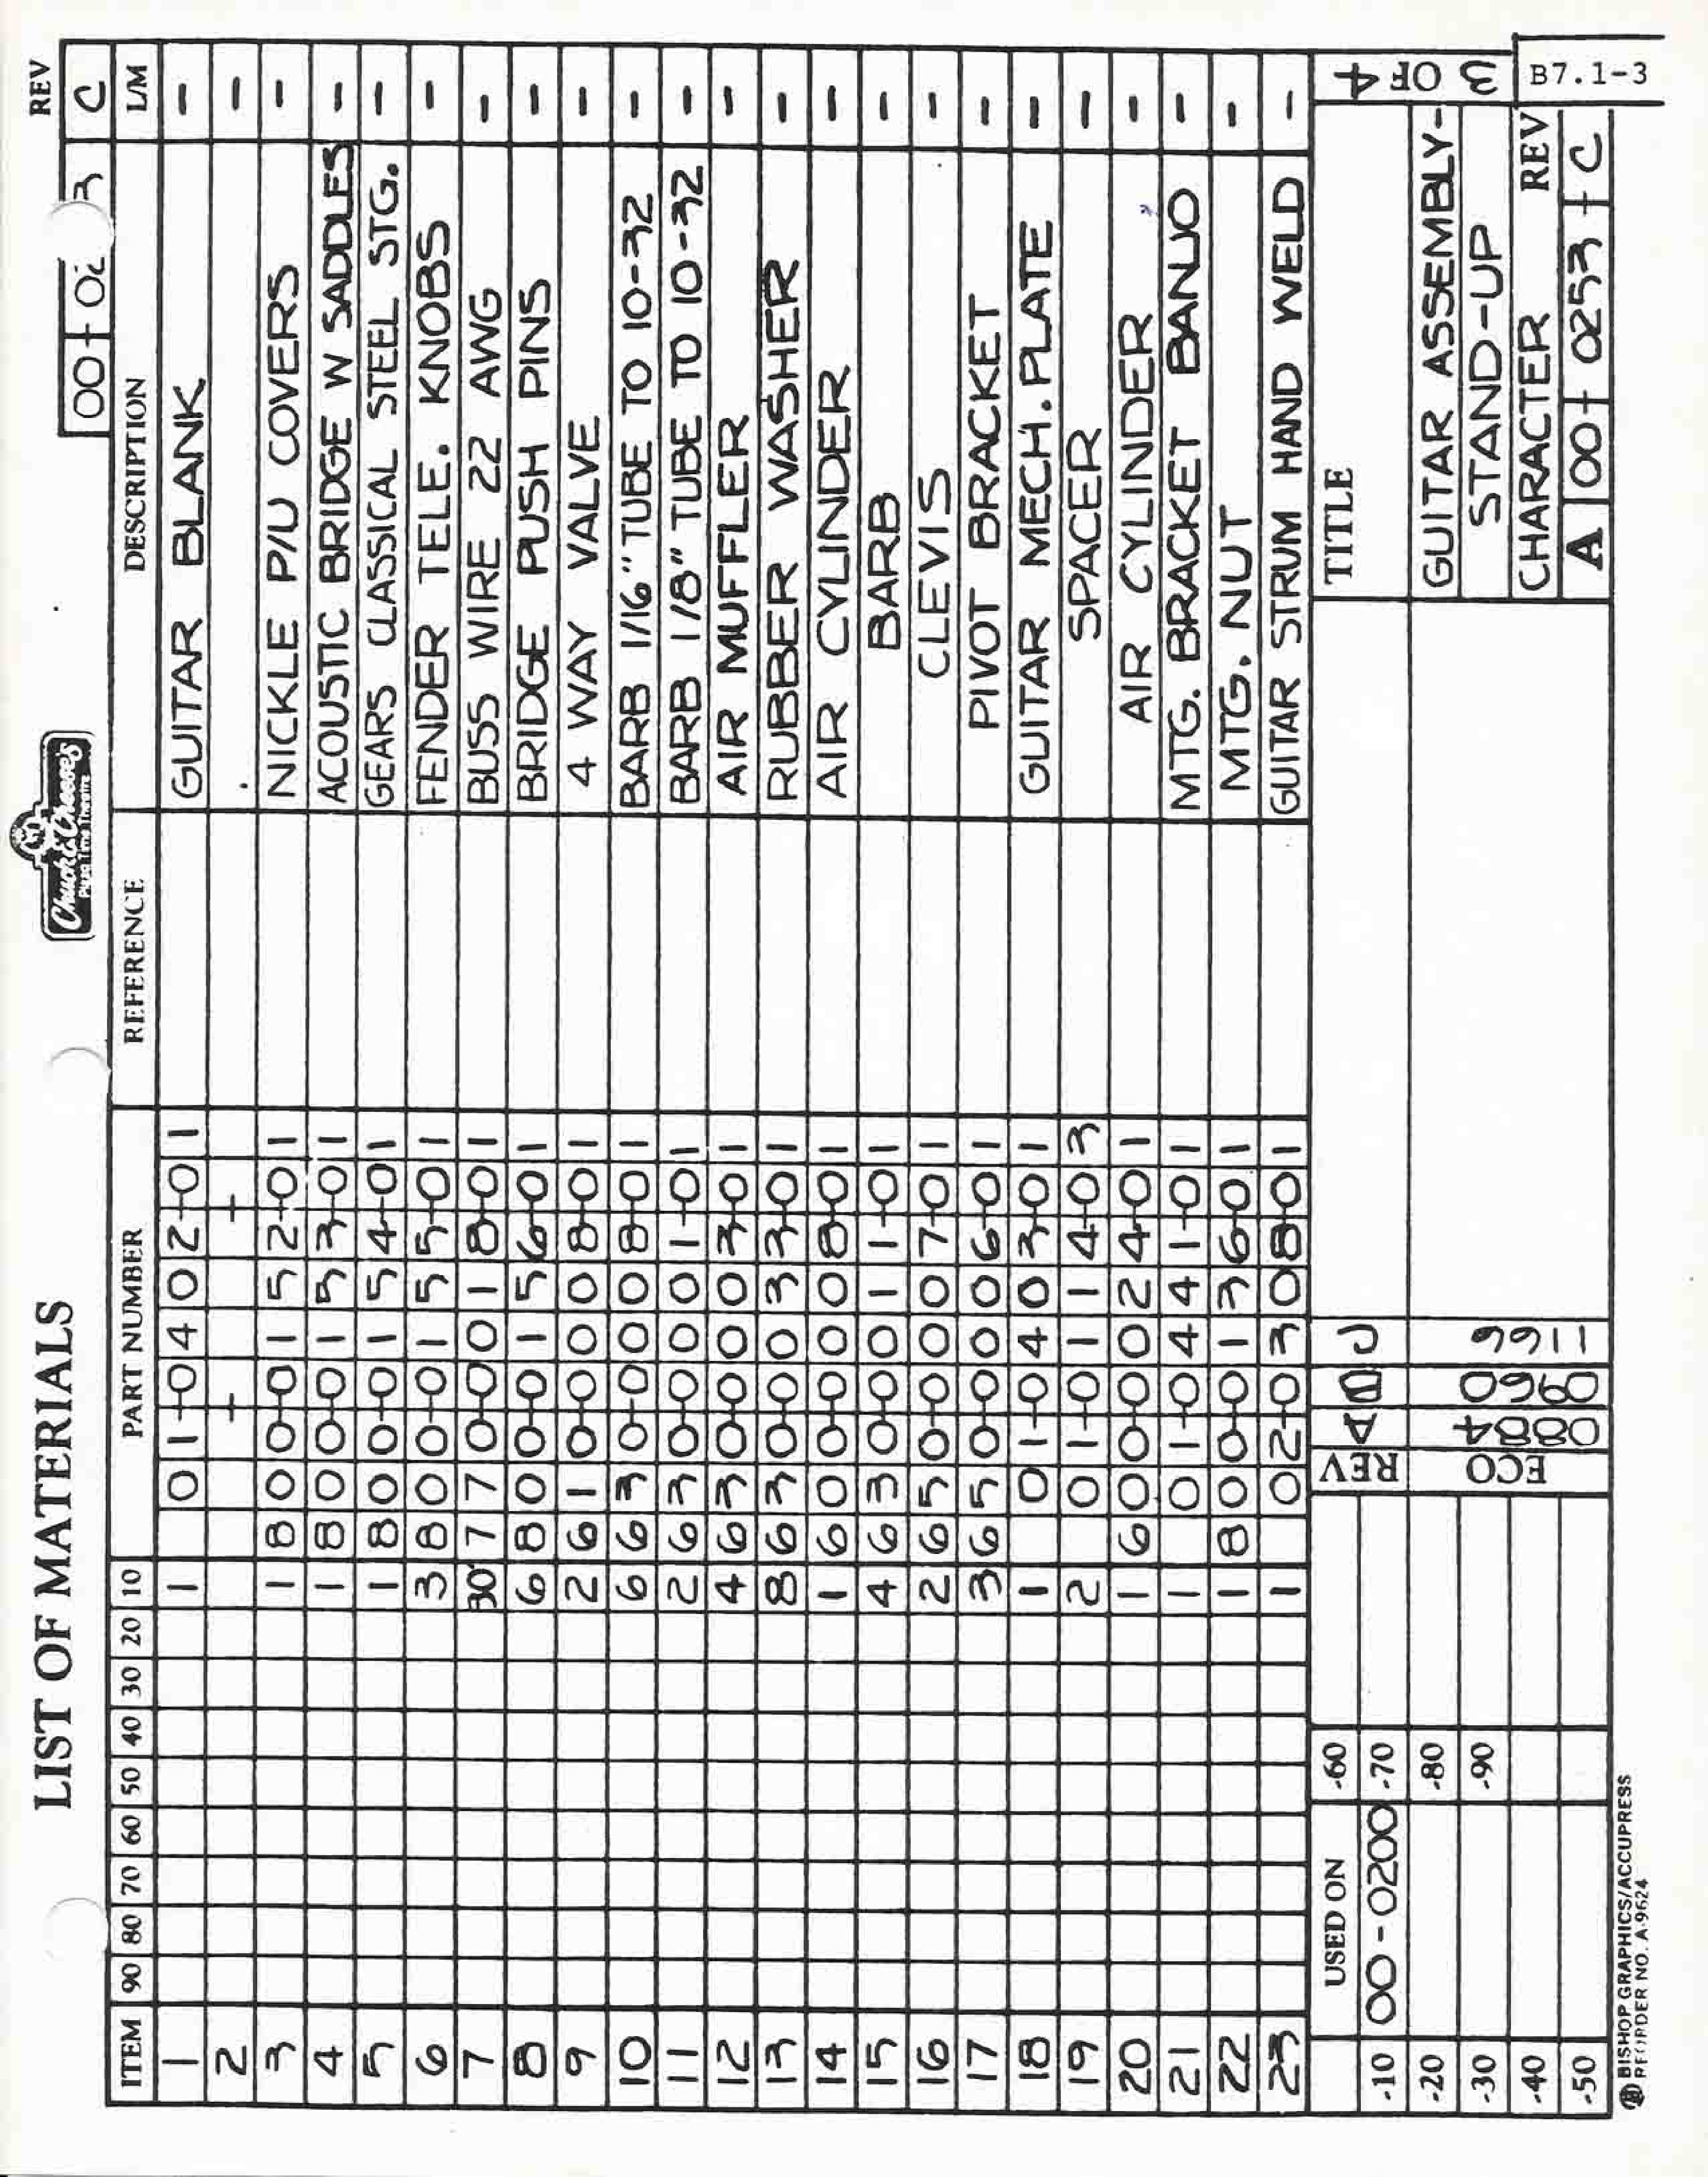 LIST OF MATERIALS
Chuck E. Cheese's
Pizza Time Theatre
REV
00-02 3 C
ITEM 90 80 70 60 50 40 30 20 10 PART NUMBER REFERENCE DESCRIPTION L/M
1 1 01-0402-01 1 GUITAR BLANK -
2 - - . -
3 1 800-0152-01 1 NICKLE P/U COVERS -
4 1 800-0153-01 1 ACOUSTIC BRIDGE W SADDLES -
5 1 800-0154-01 1 GEARS CLASSICAL STEEL STG. -
6 3 800-0155-01 1 FENDER TELE. KNOBS -
7 30" 770-0018-01 1 BUSS WIRE 22 AWG -
8 6 800-0156-01 1 BRIDGE PUSH PINS -
9 2 610-0008-01 1 4 WAY VALVE -
10 6 630-0008-01 1 BARB 1/16" TUBE TO 10-32 -
11 2 630-0001-01 1 BARB 1/8" TUBE TO 10-32 -
12 4 630-0003-01 1 AIR MUFFLER -
13 8 630-0033-01 1 RUBBER WASHER -
14 1 600-0008-01 1 AIR CYLINDER -
15 4 630-0011-01 1 BARB -
16 2 650-0007-01 1 CLEVIS -
17 3 650-0006-01 1 PIVOT BRACKET -
18 1 01-0403-01 1 GUITAR MECH. PLATE -
19 2 01-0114-03 3 SPACER -
20 1 600-0024-01 1 AIR CYLINDER -
21 1 01-0441-01 1 MTG. BRACKET BANJO -
22 1 800-0136-01 1 MTG. NUT -
23 1 02-0308-01 1 GUITAR STRUM HAND WELD -
USED ON -60 REV A B C TITLE 3 OF 4
-10 00-0200 -70
-20 -80 ECO 0884 0960 1166 GUITAR ASSEMBLY-
-30 -90 STAND-UP
-40 CHARACTER REV
-50 A 00-0253-C
B7.1-3
BISHOP GRAPHICS/ACCUPRESS
REORDER NO. A-9624